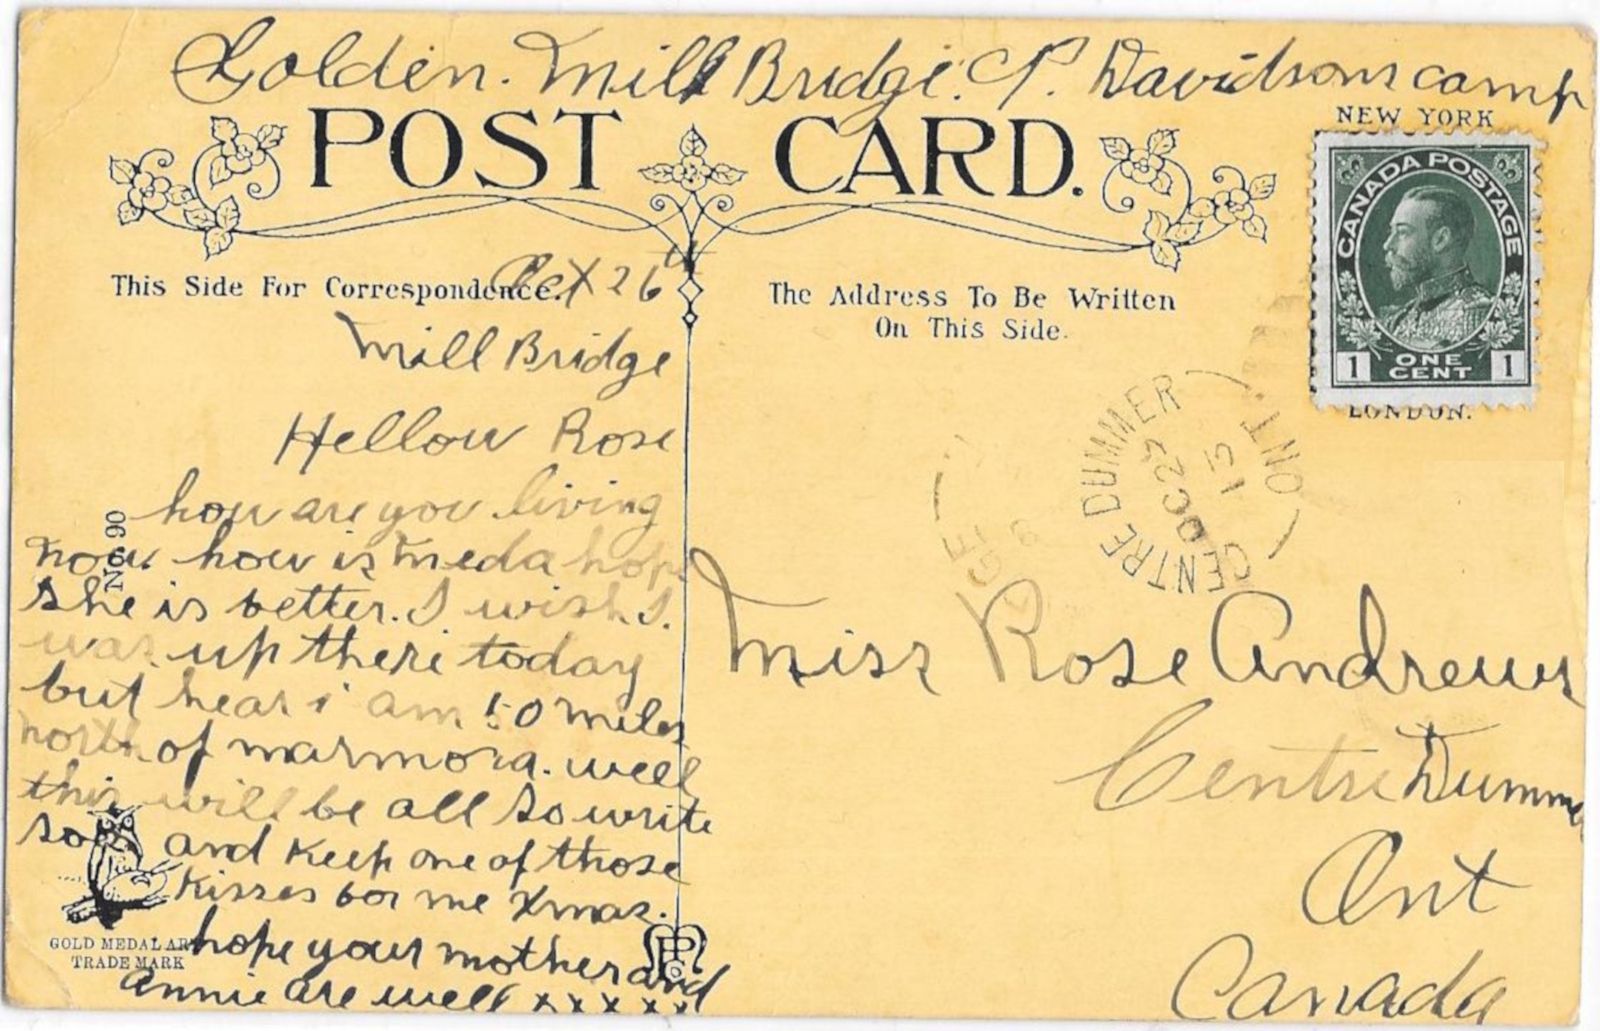 Golden. Mill Bridge. C. P. Davidsons camp
POST CARD.
NEW YORK
CANADA POSTAGE
1 ONE CENT 1
LONDON.
This Side For Correspondence.
The Address To Be Written
On This Side.
Oct 26th
Mill Bridge
Hellow Rose
how are you living
now how is Meda hope
she is better. I wish I.
was up there today
but hear i am 50 miles
north of marmora. well
this will be all so write
soon and Keep one of those
Kisses for me Xmas.
hope your mother and
Annie are well x x x x x
No 90
GOLD MEDAL AR
TRADE MARK
CENTRE DUMMER ONT.
OC 27
15
GE
Miss Rose Andrews
Centre Dummer
Ont
Canada